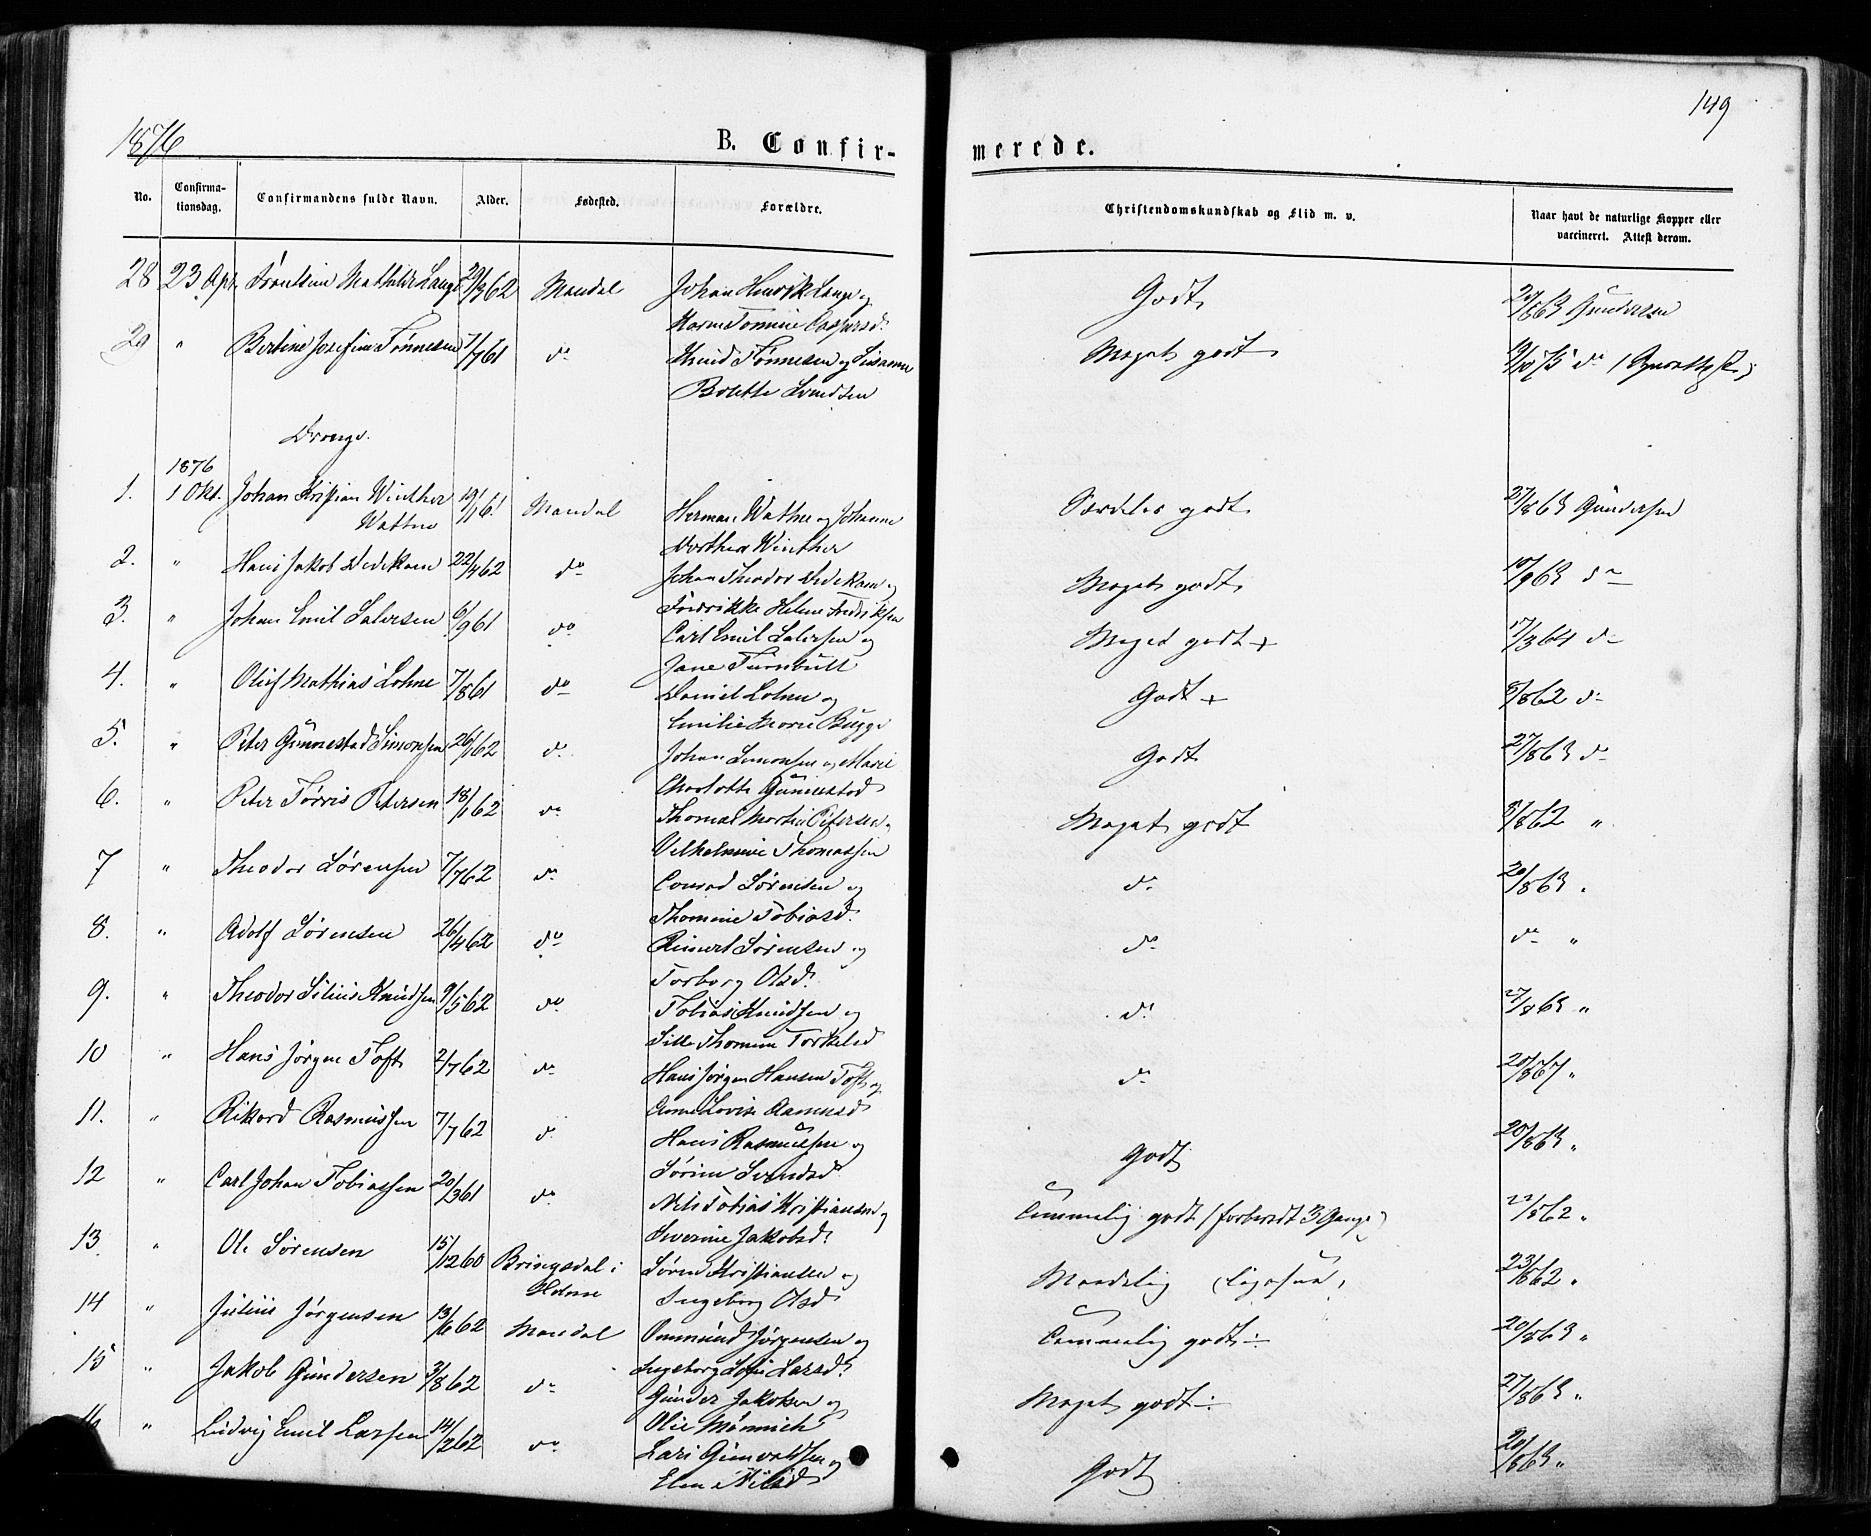 149
1876 B. Confir- merede.
No. Confirma-tionsdag. Confirmandens fulde Navn. Alder. Fødested. Forældre. Christendomskundskab og Flid m. v. Naar havt de naturlige Kopper eller vaccineret. Attest derom.
28 23 Apr. Mathilde Lange 62 Mandal Johan Henrik Lange og Godt 63 Gundersen
Karen Tomine
29 " Bertine Josefine Tønnesen 7/7 61 do Knud Tønnesen og Susanne Meget godt 75 do
Bolette Svendsen
Drenge.
1876
1. 1 Okt. Johan Kristian Winther 61 Mandal Herman Wattne og Johanne Særdeles godt 27/8 63 Gundersen
Wattne Dorthea Winther
2. " Hans Jakob Dedekam 22/4 62 do Johan Theodor Dedekam og Meget godt 10/9 63 do
Fredrikke Helene Fredriksen
3. " Johan Emil Salvesen 6/9 61 do Carl Emil Salvesen og Meget godt + 17/3 64 do
Jane Turnbull
4. " Oluf Mathias Lohne 7/8 61 do Daniel Lohne og Godt + 8/8 62 do
Emilie Marie Bugge
5. " Peter Gunnestad Simonsen 26/1 62 do Johan Simonsen og Marie Godt 27/8 63 do
Charlotte Gunnestad
6. " Peter Tørris Petersen 18/1 62 do Thomas Martin Petersen og Meget godt 8/8 62 "
Vilhelmine Thomassen
7 " Theodor Sørensen 7/7 62 do Conrad Sørensen og do 20/8 63 "
Thomine Tobiasd.
8. " Adolf Sørensen 26/4 62 do Reinert Sørensen og do do "
Torborg Olsd.
9. " Theodor Silius Knudsen 9/5 62 do Tobias Knudsen og do 27/8 63 "
Sille Thomine Torkelsd
10 " Hans Jørgen Toft 2/7 62 do Hans Jørgen Hansen Toft og do 20/8 67 "
Anne Lovise
11. " Rikard Rasmussen 7/7 62 do Hans Rasmussen og Godt 20/8 63 "
Sørine Svendsd
12 " Carl Johan Tobiassen 20/3 61 do Nils Tobias Kristiansen og Temmelig godt (forberedt 3 Gange) 62 "
Severine Jakobsd.
13. " Ole Sørensen 15/12 60 Bringsdal i Søren Kristiansen og Maadelig (ligesaa) 23/8 62 "
Holme Ingeborg Olsd
14 " Julius Jørgensen 13/6 62 Mandal Ommund Jørgensen og Temmelig godt ÷ 20/8 63 "
Ingeborg Sofie Larsd.
15 " Jakob Gundersen 3/8 62 do Gunder Jakobsen og Meget godt ÷ 27/8 63 "
Olie Mønnich
16 " Ludvig Emil Larsen 14/2 62 do Lars Gunvaldsen og Godt 20/8 63 "
Elen Nilsd